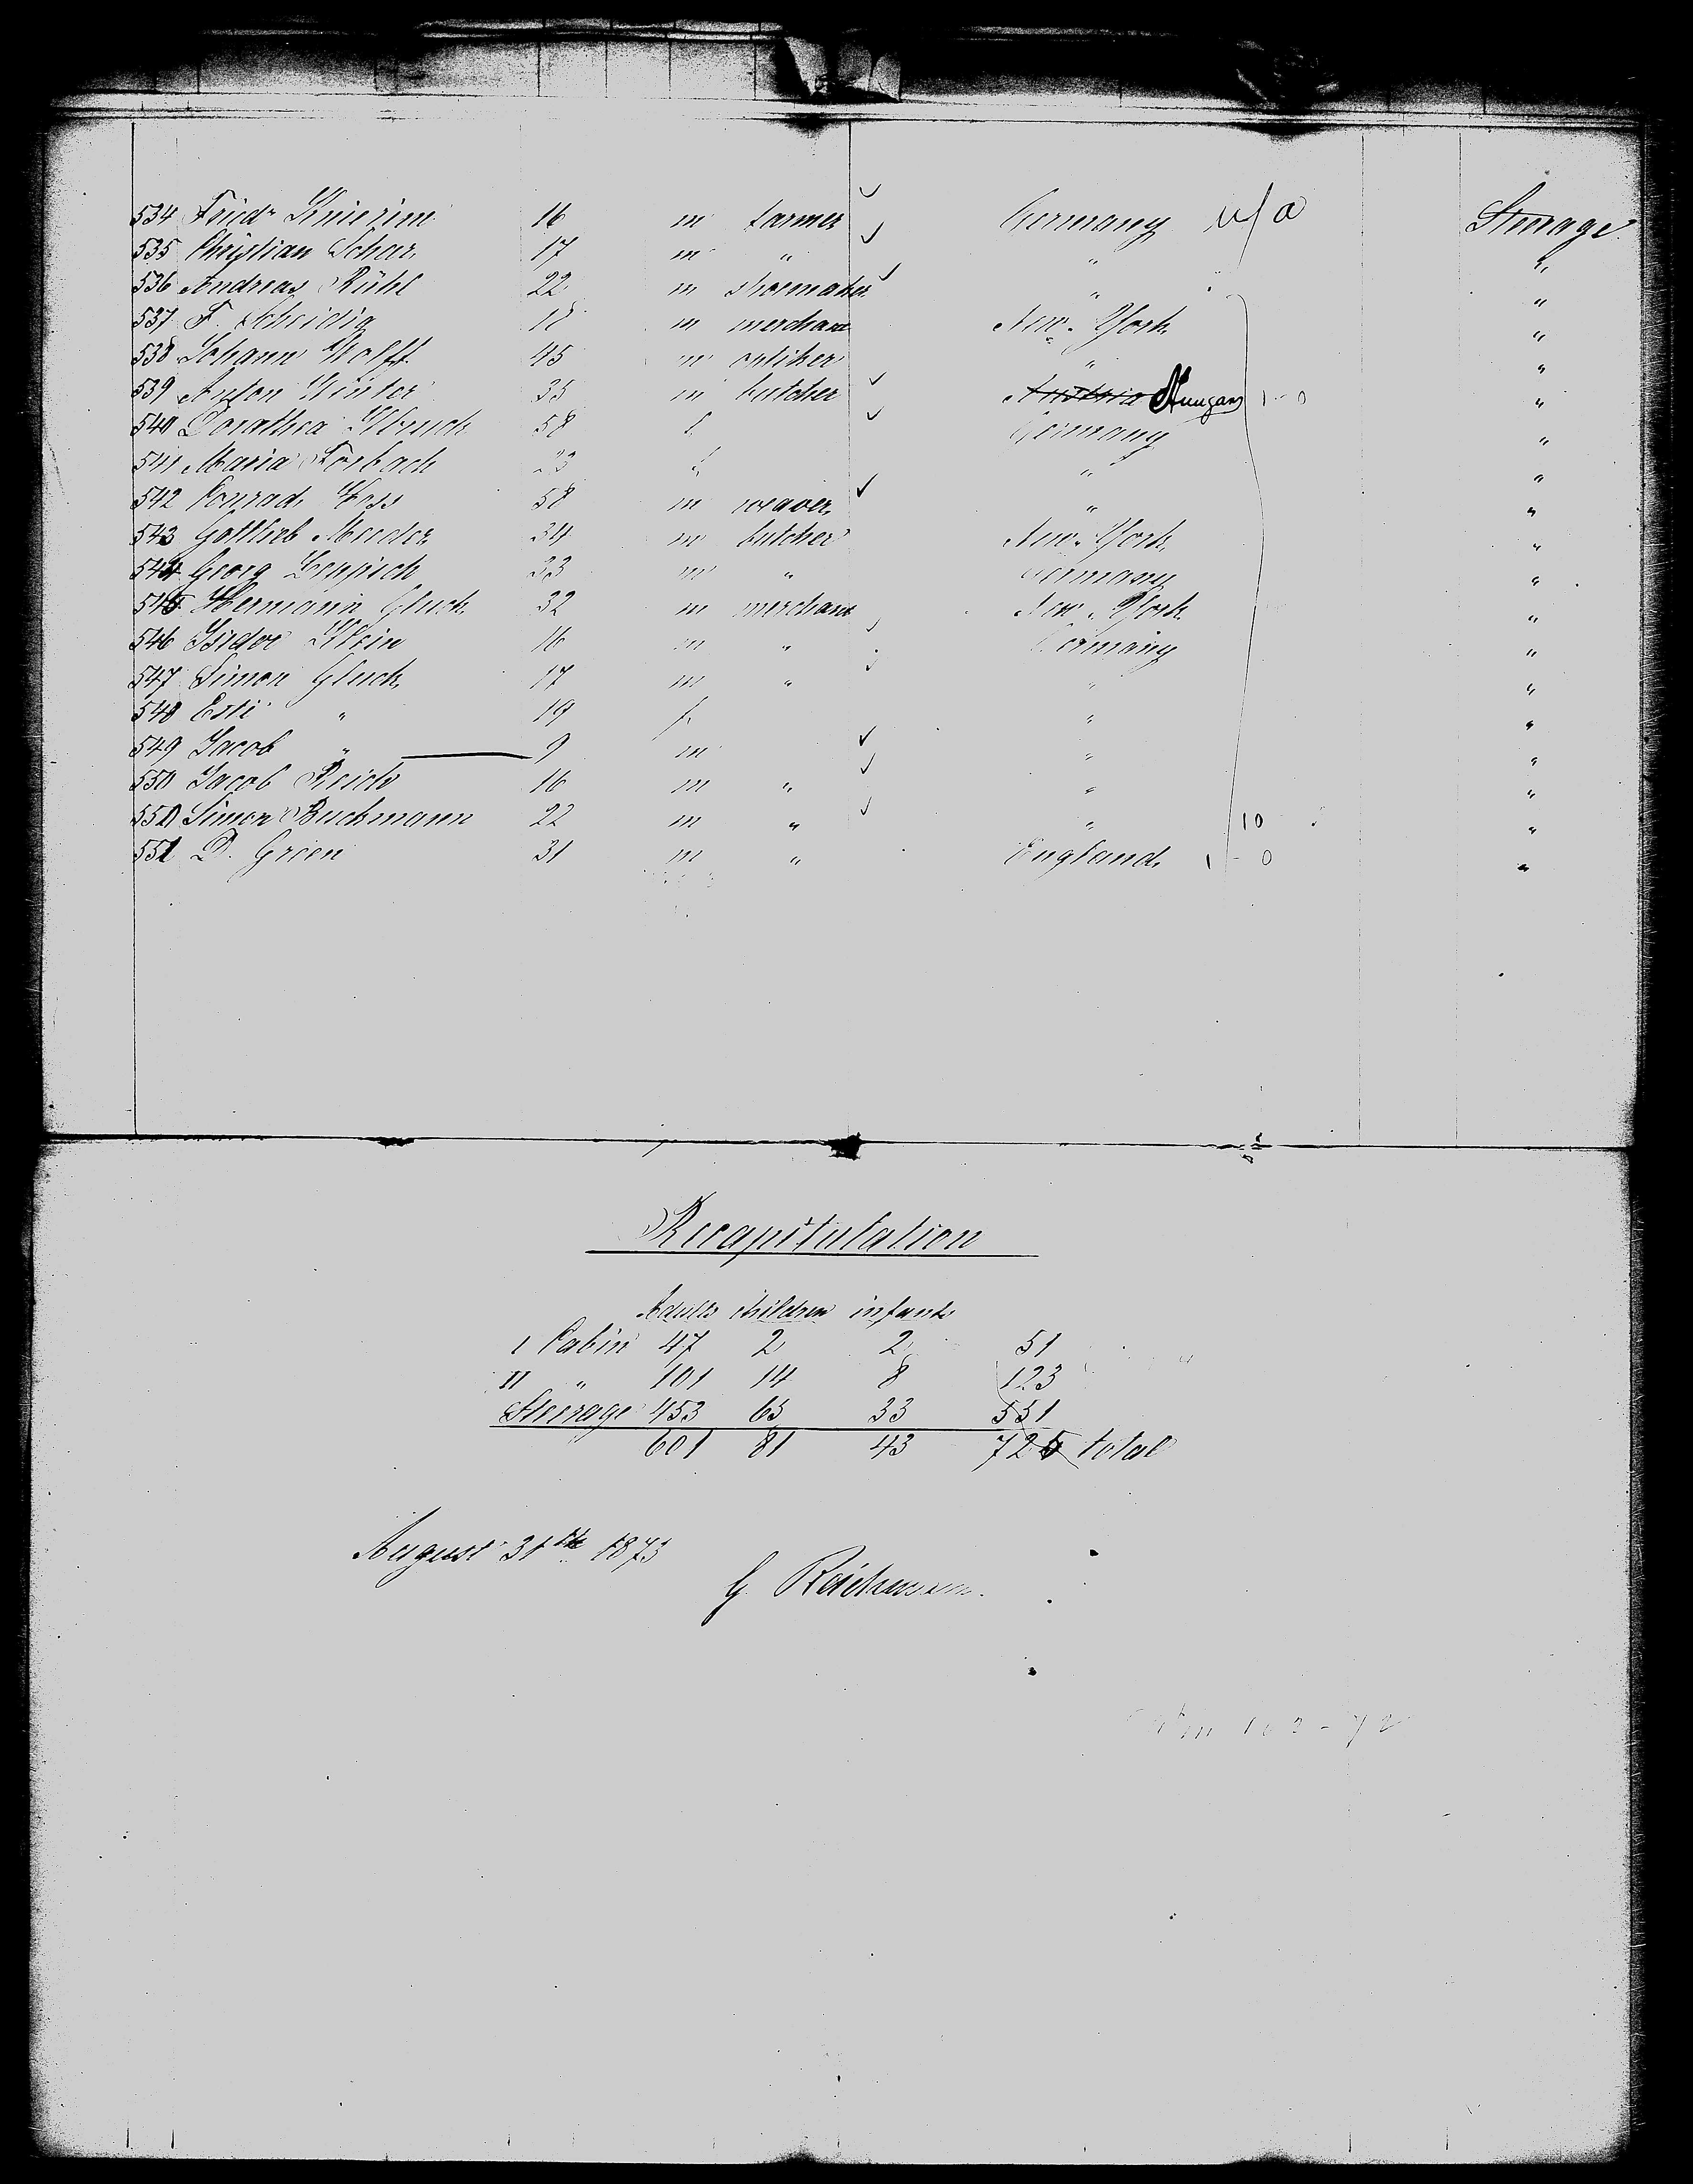 534 Friedr Knierim 16 m farmer Germany u/a Steerage
535 Christian Schar 17 m " " "
536 Andreas Rühl 22 m shoemaker " "
537 F. Scheidig m merchant New-York "
538 Johann Wolff 45 m optiker " "
539 Anton Winter 35 m butcher Austria Hungary 1-0 "
540 Dorathea 58 f Germany "
541 Maria Forbach 23 f " "
542 Conrad Hess 58 m weaver " "
543 Gottlieb Meeder 34 m butcher New-York "
544 Georg 33 m " Germany "
545 Hermann Gluck 32 m merchant New-York "
546 Isidor Klein 16 m " Germany "
547 Simon Gluck 17 m " " "
548 Esti " 19 f " "
549 Jacob " 9 m " "
550 Jacob Reich 16 m " " "
550 Simon Buchmann 22 m " " 10 "
551 D. Green 31 m " England 1-0 "
Recapitulation
Adults children infants
I Cabin 47 2 2 51
II " 101 14 8 123
Steerage 453 65 33 551
601 81 43 725 total
August 31th 1873
G.